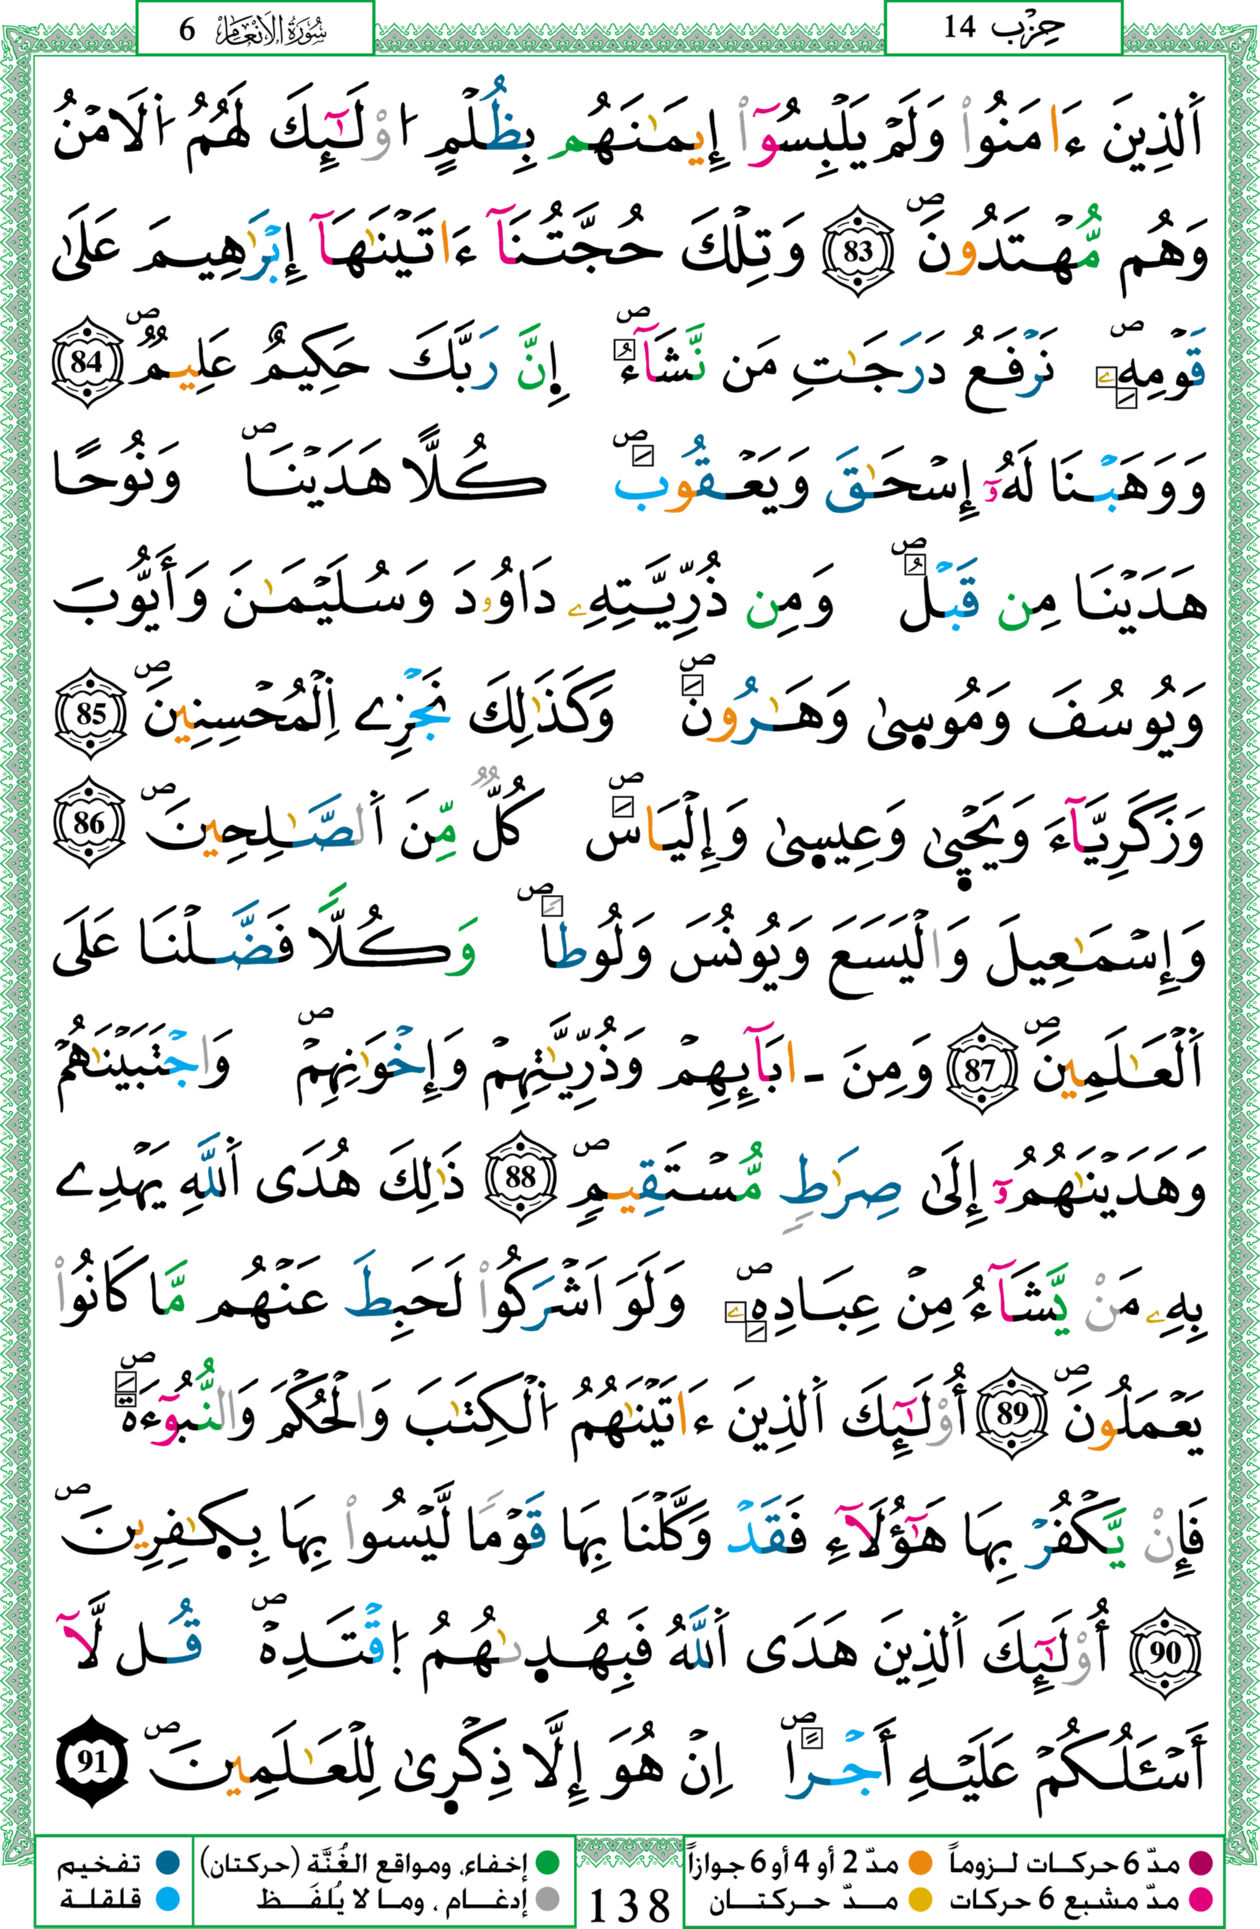 حِزْب 14
سُورَةُ الاَنْعَام 6
اَ۬لذِينَ ءَامَنُواْ وَلَمْ يَلْبِسُوٓاْ إِيمَٰنَهُم بِظُلْمٍ ا۟وْلَٰٓئِكَ لَهُمُ اُ۬لَامْنُ
وَهُم مُّهْتَدُونَۖ 83 وَتِلْكَ حُجَّتُنَآ ءَاتَيْنَٰهَآ إِبْرَٰهِيمَ عَلَىٰ
قَوْمِهِۦۖ نَرْفَعُ دَرَجَٰتِ مَن نَّشَآءُۖ إِنَّ رَبَّكَ حَكِيمٌ عَلِيمٌۖ 84
وَوَهَبْنَا لَهُۥٓ إِسْحَٰقَ وَيَعْقُوبَۖ كُلّاً هَدَيْنَاۖ وَنُوحاً
هَدَيْنَا مِن قَبْلُۖ وَمِن ذُرِّيَّتِهِۦ دَاوُۥدَ وَسُلَيْمَٰنَ وَأَيُّوبَ
وَيُوسُفَ وَمُوسىٰ وَهَٰرُونَۖ وَكَذَٰلِكَ نَجْزِے اِ۬لْمُحْسِنِينَۖ 85
وَزَكَرِيَّآءَ وَيَحْيىٰ وَعِيسىٰ وَإِلْيَاسَۖ كُلٌّ مِّنَ اَ۬لصَّٰلِحِينَۖ 86
وَإِسْمَٰعِيلَ وَالْيَسَعَ وَيُونُسَ وَلُوطاًۖ وَكُلّاً فَضَّلْنَا عَلَى
اَ۬لْعَٰلَمِينَۖ 87 وَمِنَ ـ ابَآئِهِمْ وَذُرِّيَّٰتِهِمْ وَإِخْوَٰنِهِمْۖ وَاجْتَبَيْنَٰهُمْ
وَهَدَيْنَٰهُمُۥٓ إِلَىٰ صِرَٰطٍ مُّسْتَقِيمٍۖ 88 ذَٰلِكَ هُدَى اَ۬للَّهِ يَهْدِے
بِهِۦ مَنْ يَّشَآءُ مِنْ عِبَادِهِۦۖ وَلَوَ اَشْرَكُواْ لَحَبِطَ عَنْهُم مَّا كَانُواْ
يَعْمَلُونَۖ 89 أُوْلَٰٓئِكَ اَ۬لذِينَ ءَاتَيْنَٰهُمُ اُ۬لْكِتَٰبَ وَالْحُكْمَ وَالنُّبُوٓءَةَۖ
فَإِنْ يَّكْفُرْ بِهَا هَٰٓؤُلَآءِ فَقَدْ وَكَّلْنَا بِهَا قَوْماً لَّيْسُواْ بِهَا بِكٰفِرِينَۖ
90 أُوْلَٰٓئِكَ اَ۬لذِينَ هَدَى اَ۬للَّهُ فَبِهُدىٰهُمُ اُ۪قْتَدِهْۖ قُل لَّآ
أَسْـَٔلُكُمْ عَلَيْهِ أَجْراًۖ اِنْ هُوَ إِلَّا ذِكْرىٰ لِلْعَٰلَمِينَۖ 91
مدّ 6 حركات لـزوماً مدّ 2 أو 4 أو 6 جوازاً
مدّ مشبع 6 حركات مـدّ حـركتـان
138
إخفاء، ومواقع الغُنَّة (حركتان)
إدغـام ، ومـا لا يُلفَـظ
تفخيم
قلقلة